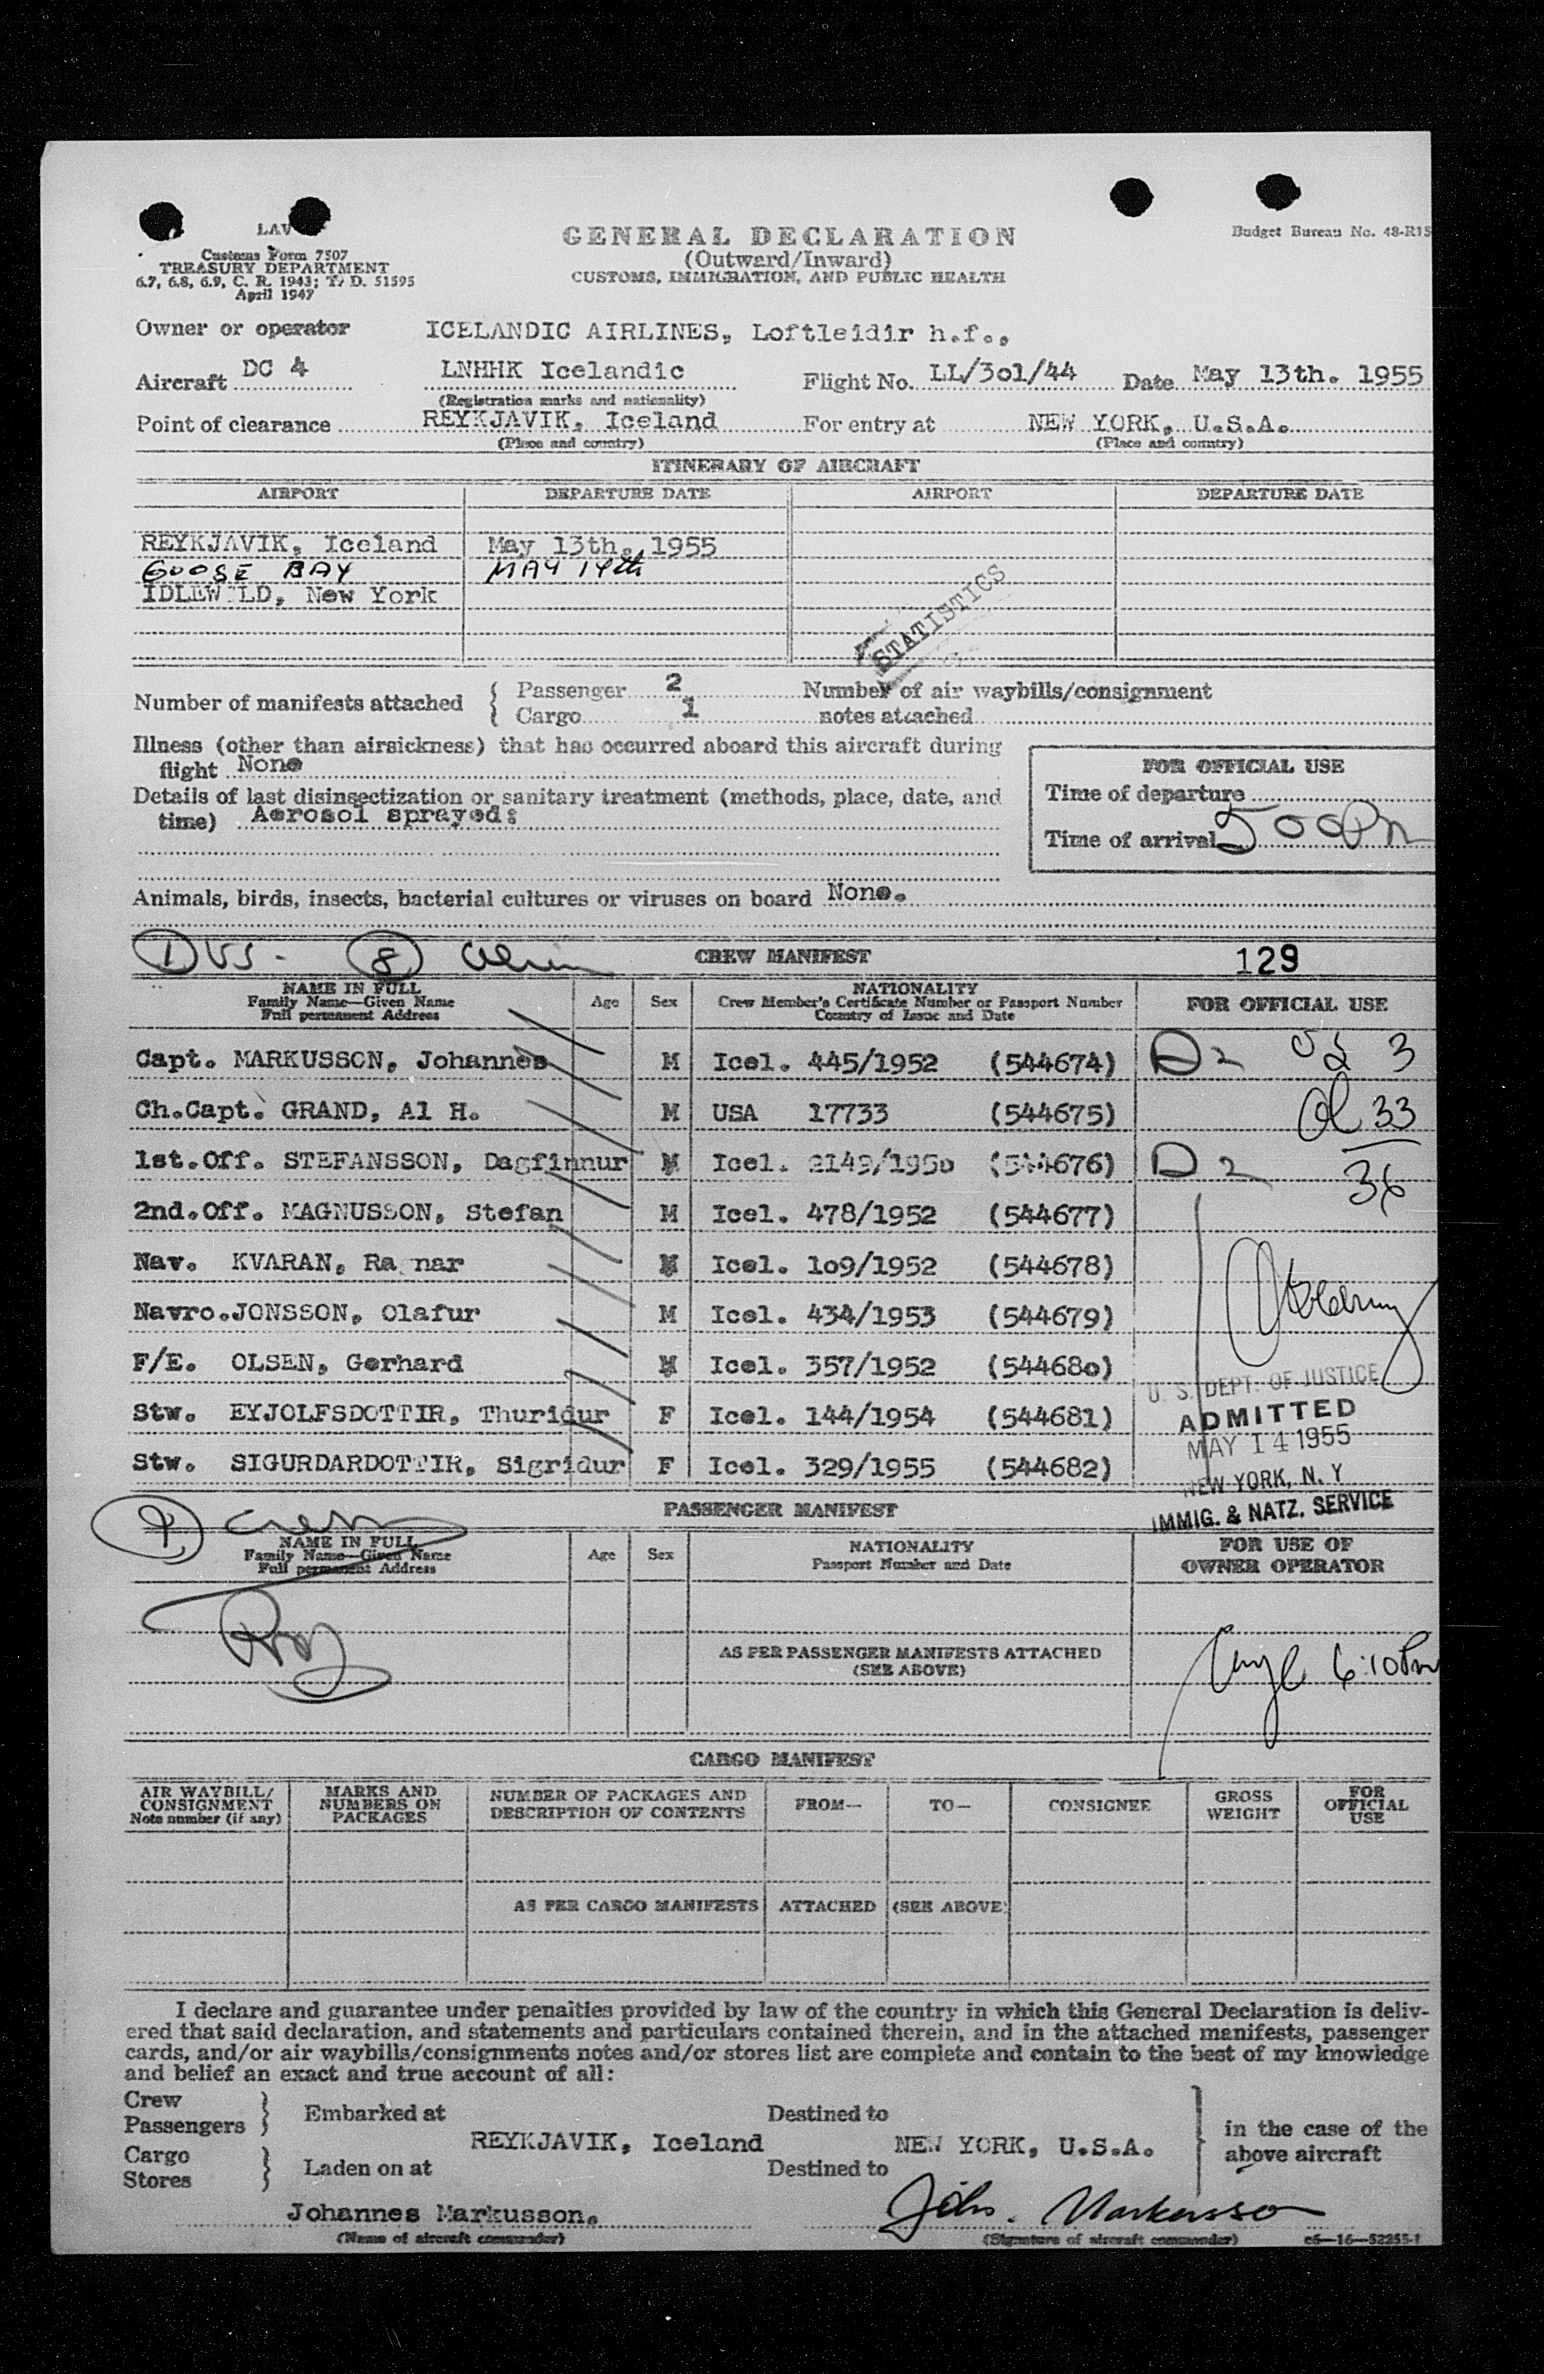 LAV
Customs Form 7507
TREASURY DEPARTMENT
6.7, 6.8, 6.9, C. R. 1943; T. D. 51595
April 1947
GENERAL DECLARATION
(Outward/Inward)
CUSTOMS, IMMIGRATION, AND PUBLIC HEALTH
Budget Bureau No. 48-R15
Owner or operator ICELANDIC AIRLINES, Loftleidir h.f.,
Aircraft DC 4 LNHHK Icelandic Flight No. LL/3o1/44 Date May 13th. 1955
(Registration marks and nationality)
Point of clearance REYKJAVIK, Iceland For entry at NEW YORK, U.S.A.
(Place and country) (Place and country)
ITINERARY OF AIRCRAFT
AIRPORT DEPARTURE DATE AIRPORT DEPARTURE DATE
REYKJAVIK, Iceland May 13th. 1955
GOOSE BAY MAY 14th
IDLEWILD, New York
STATISTICS
Number of manifests attached { Passenger 2 Number of air waybills/consignment
Cargo 1 notes attached
Illness (other than airsickness) that has occurred aboard this aircraft during
flight None
Details of last disinsectization or sanitary treatment (methods, place, date, and
time) Aerosol sprayed:
FOR OFFICIAL USE
Time of departure
Time of arrival 500Pm
Animals, birds, insects, bacterial cultures or viruses on board None.
1 US - 8 alien CREW MANIFEST 129
NAME IN FULL
Family Name—Given Name
Full permanent Address
Age Sex
NATIONALITY
Crew Member's Certificate Number or Passport Number
Country of Issue and Date
FOR OFFICIAL USE
Capt. MARKUSSON, Johannes M Icel. 445/1952 (544674) D2 US 3
Ch.Capt. GRAND, Al H. M USA 17733 (544675) al 33
1st.Off. STEFANSSON, Dagfinnur M Icel. 2149/195o (544676) D2 36
2nd.Off. MAGNUSSON, Stefan M Icel. 478/1952 (544677)
Nav. KVARAN, Ra nar M Icel. 1o9/1952 (544678)
Navro.JONSSON, Olafur M Icel. 434/1953 (544679)
F/E. OLSEN, Gerhard M Icel. 357/1952 (54468o)
Stw. EYJOLFSDOTTIR, Thuridur F Icel. 144/1954 (544681)
Stw. SIGURDARDOTTIR, Sigridur F Icel. 329/1955 (544682)
U. S. DEPT. OF JUSTICE
ADMITTED
MAY 14 1955
NEW YORK, N. Y
IMMIG. & NATZ. SERVICE
9 crew PASSENGER MANIFEST
NAME IN FULL
Family Name—Given Name
Full permanent Address
Age Sex
NATIONALITY
Passport Number and Date
FOR USE OF
OWNER OPERATOR
AS PER PASSENGER MANIFESTS ATTACHED
(SEE ABOVE)
6:10Pm
CARGO MANIFEST
AIR WAYBILL/
CONSIGNMENT
Note number (if any)
MARKS AND
NUMBERS ON
PACKAGES
NUMBER OF PACKAGES AND
DESCRIPTION OF CONTENTS
FROM— TO— CONSIGNEE
GROSS
WEIGHT
FOR
OFFICIAL
USE
AS PER CARGO MANIFESTS ATTACHED (SEE ABOVE)
I declare and guarantee under penalties provided by law of the country in which this General Declaration is deliv-
ered that said declaration, and statements and particulars contained therein, and in the attached manifests, passenger
cards, and/or air waybills/consignments notes and/or stores list are complete and contain to the best of my knowledge
and belief an exact and true account of all:
Crew
Passengers } Embarked at Destined to
REYKJAVIK, Iceland NEW YORK, U.S.A.
Cargo
Stores } Laden on at Destined to
in the case of the
above aircraft
Johannes Markusson. Johs. Markusson
(Name of aircraft commander) (Signature of aircraft commander) c6—16—52255-1